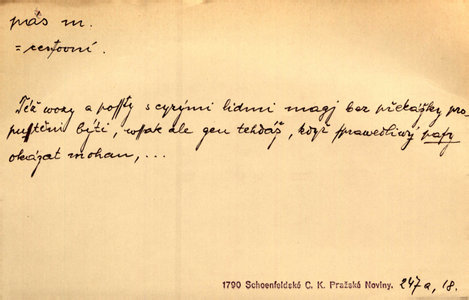 pas m.
= cestovní.
Též wozy a possty s cyzými lidmi magj bez překážky pro
pusstěni býti, wssak ale gen tehdáž, když sprawedliwý passy
okázat mohau, ...
1790 Schoenfeldské C. K. Pražské Noviny. 247a, 18.